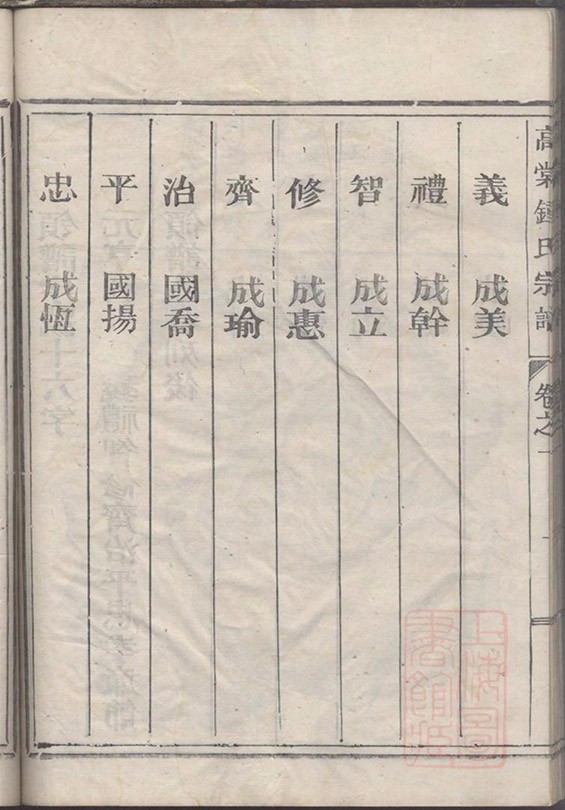 高棠鍾氏宗譜 卷之一
義 成美
禮 成幹
智 成立
修 成惠
齊 成瑜
治 國喬
平 國揚
忠 成恆
上海圖書館藏